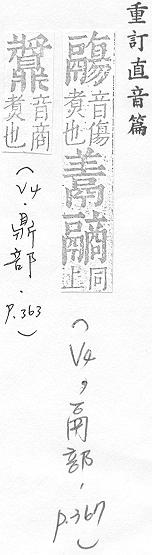 重訂直音篇
鬺音傷煑也
同上
(V4,鬲部,p.367)
䵼音商煑也
(V4.鼎部.p.363)